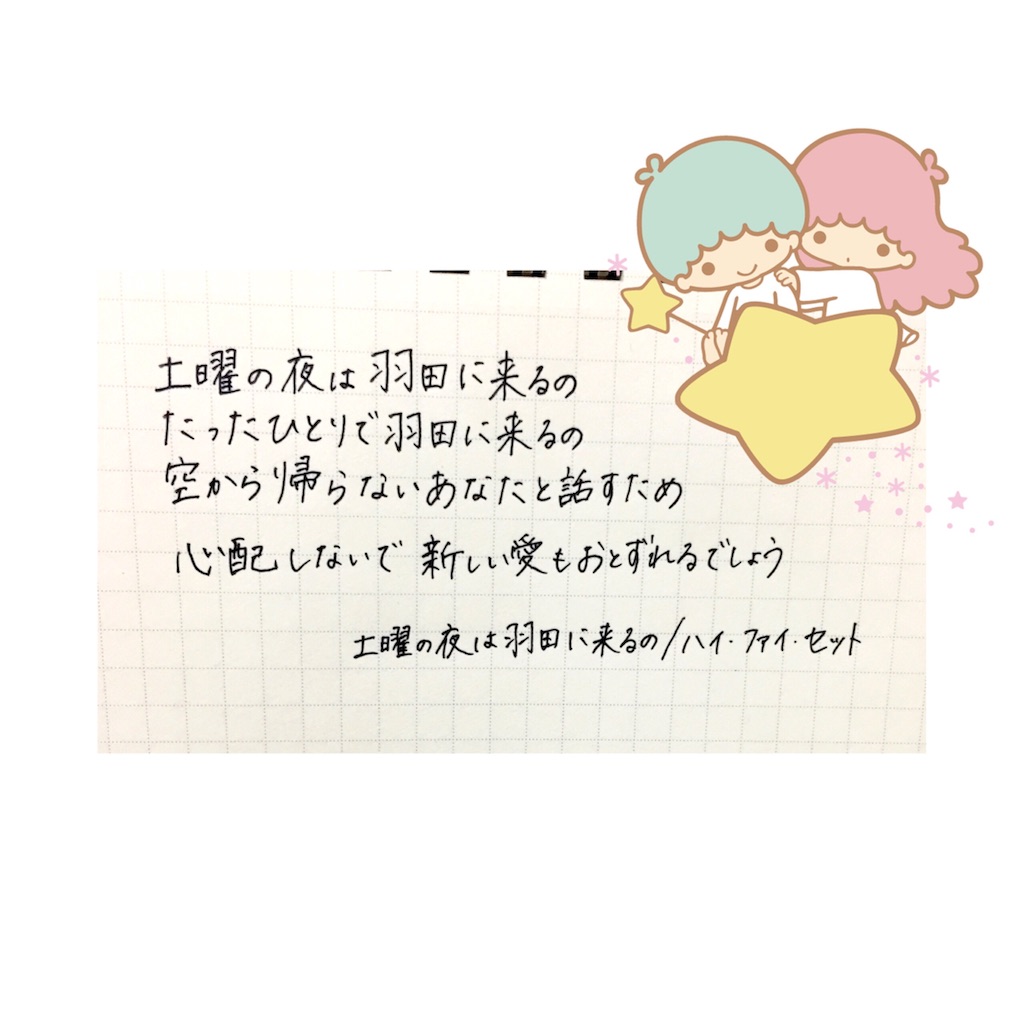 土曜の夜は羽田に来るの
たったひとりで羽田に来るの
空から帰らないあなたと話すため
心配しないで 新しい愛もおとずれるでしょう
土曜の夜は羽田に来るの/ハイ・ファイ・セット